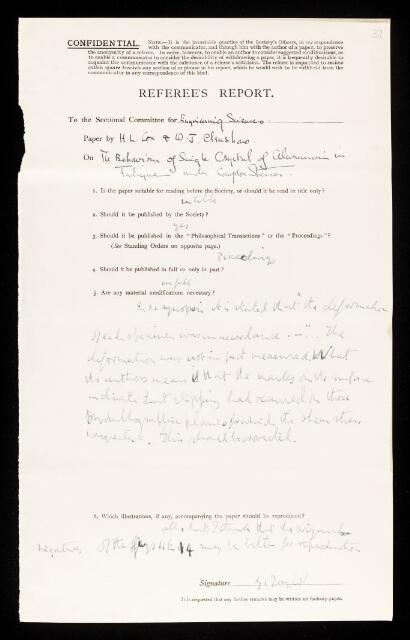 32
CONFIDENTIAL. NOTE.—It is the invariable practice of the Society's Officers, in correspondence
with the communicator, and through him with the author of a paper, to preserve
the anonymity of a referee. In order, however, to enable an author to consider suggested modifications, or
to enable a communicator to consider the desirability of withdrawing a paper, it is frequently desirable to
acquaint the communicator with the substance of a referee's criticisms. The referee is requested to
within square brackets any section of or phrase in his report, which he would wish to be withheld from the
communicator in any correspondence of this kind.
REFEREE'S REPORT.
To the Sectional Committee for Engineering Sciences
Paper by H. L. Cox & W. J. Clenshaw
On The Behaviour of Single Crystal of Aluminium in
Fatigue under Complex Stresses.
1. Is the paper suitable for reading before the Society, or should it be read in title only?
in title
2. Should it be published by the Society?
yes
3. Should it be published in the "Philosophical Transactions" or the "Proceedings"?
(See Standing Orders on opposite page.)
Proceedings
4. Should it be published in full or only in part?
in full
5. Are any material modifications necessary?
In the synopsis it is stated that "the deformation
of each specimen was in accordance ...". The
deformation was not in fact measured but
the authors mean that the marks on the surface
indicate that slipping had occurred on those
crystallographic planes for which the shear stress
. This should be corrected.
6. Which illustrations, if any, accompanying the paper should be reproduced?
all, but I think that the original
negatives of the figs 14 may be better for reproduction
Signature G. I. Taylor
It is requested that any further remarks may be written on foolscap paper.